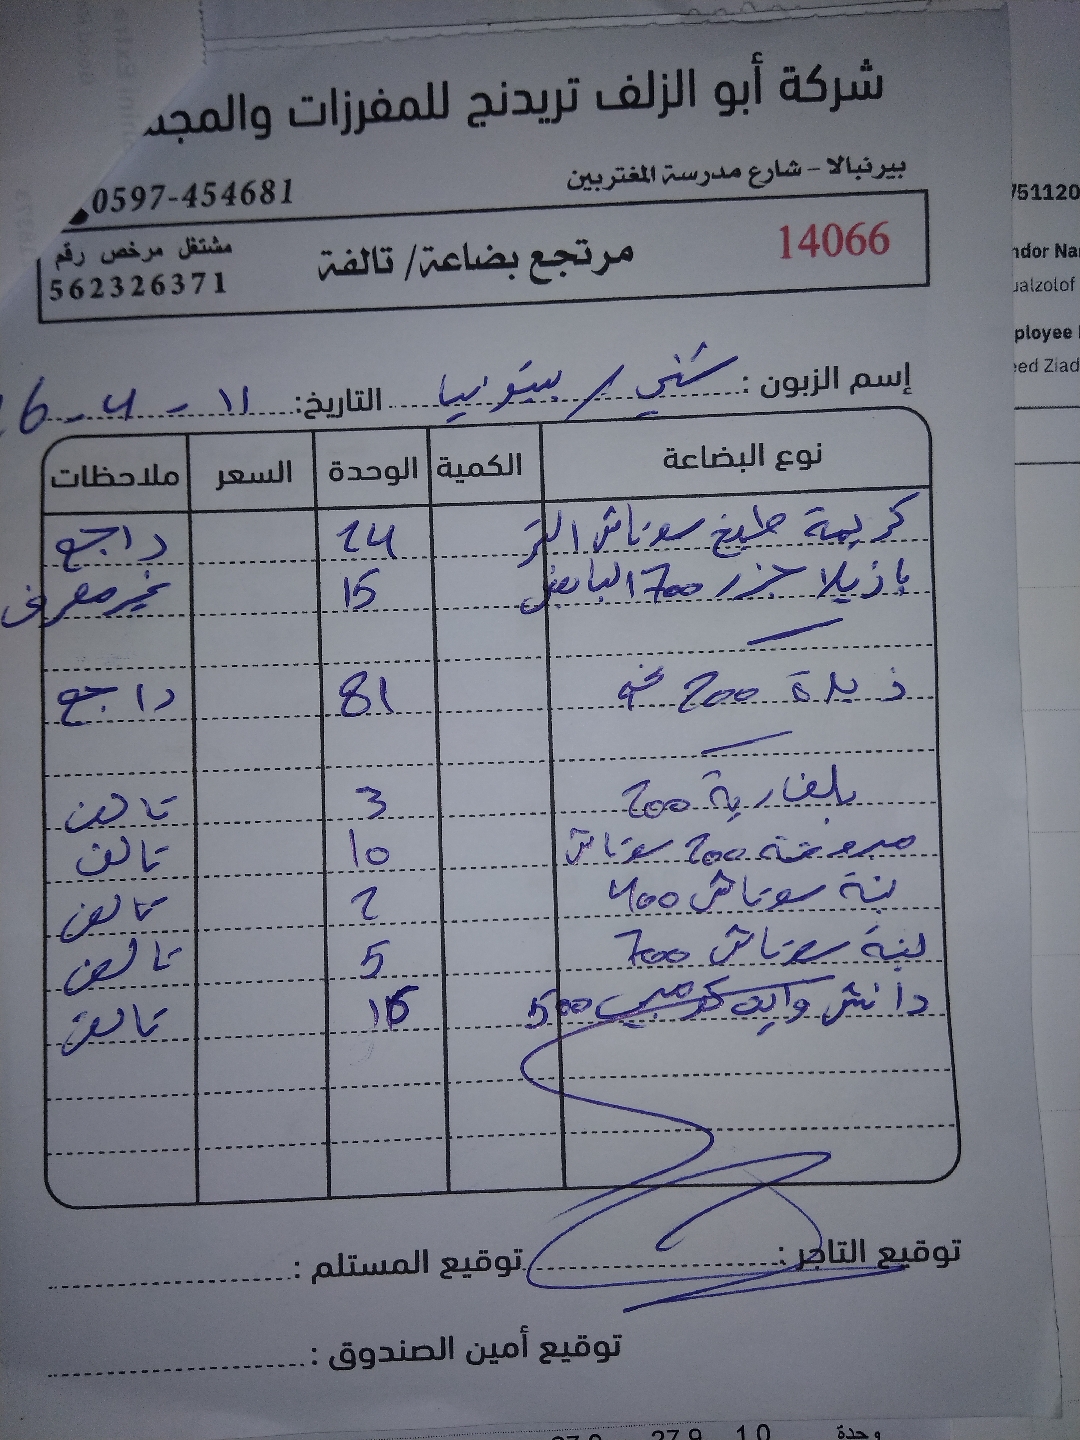 شركة أبو الزلف تريدنج للمفرزات والمجمد
بيرنبالا - شارع مدرسة المغتربين
0597-454681
مشتغل مرخص رقم
562326371
مرتجع بضاعة/ تالفة
14066
إسم الزبون : شني / بيتونيا التاريخ: 11 - 4 - 26
نوع البضاعة الكمية الوحدة السعر ملاحظات
كريمة طبخ سوتاش لتر 24 راجع
بازيلا جزر 700 15 غير معروف
زبدة 200 غم 81 راجع
بلغارية 200 3 تالف
مبروشة 200 سوتاش 10 تالف
لبنة سوتاش 400 2 تالف
لبنة سوتاش 700 5 تالف
دانش وايت 500 16 تالف
توقيع التاجر : توقيع المستلم :
توقيع أمين الصندوق :
751120
ndor Nar
ualzolof
ployee
eed Ziad
27.9 1.0 وحدة